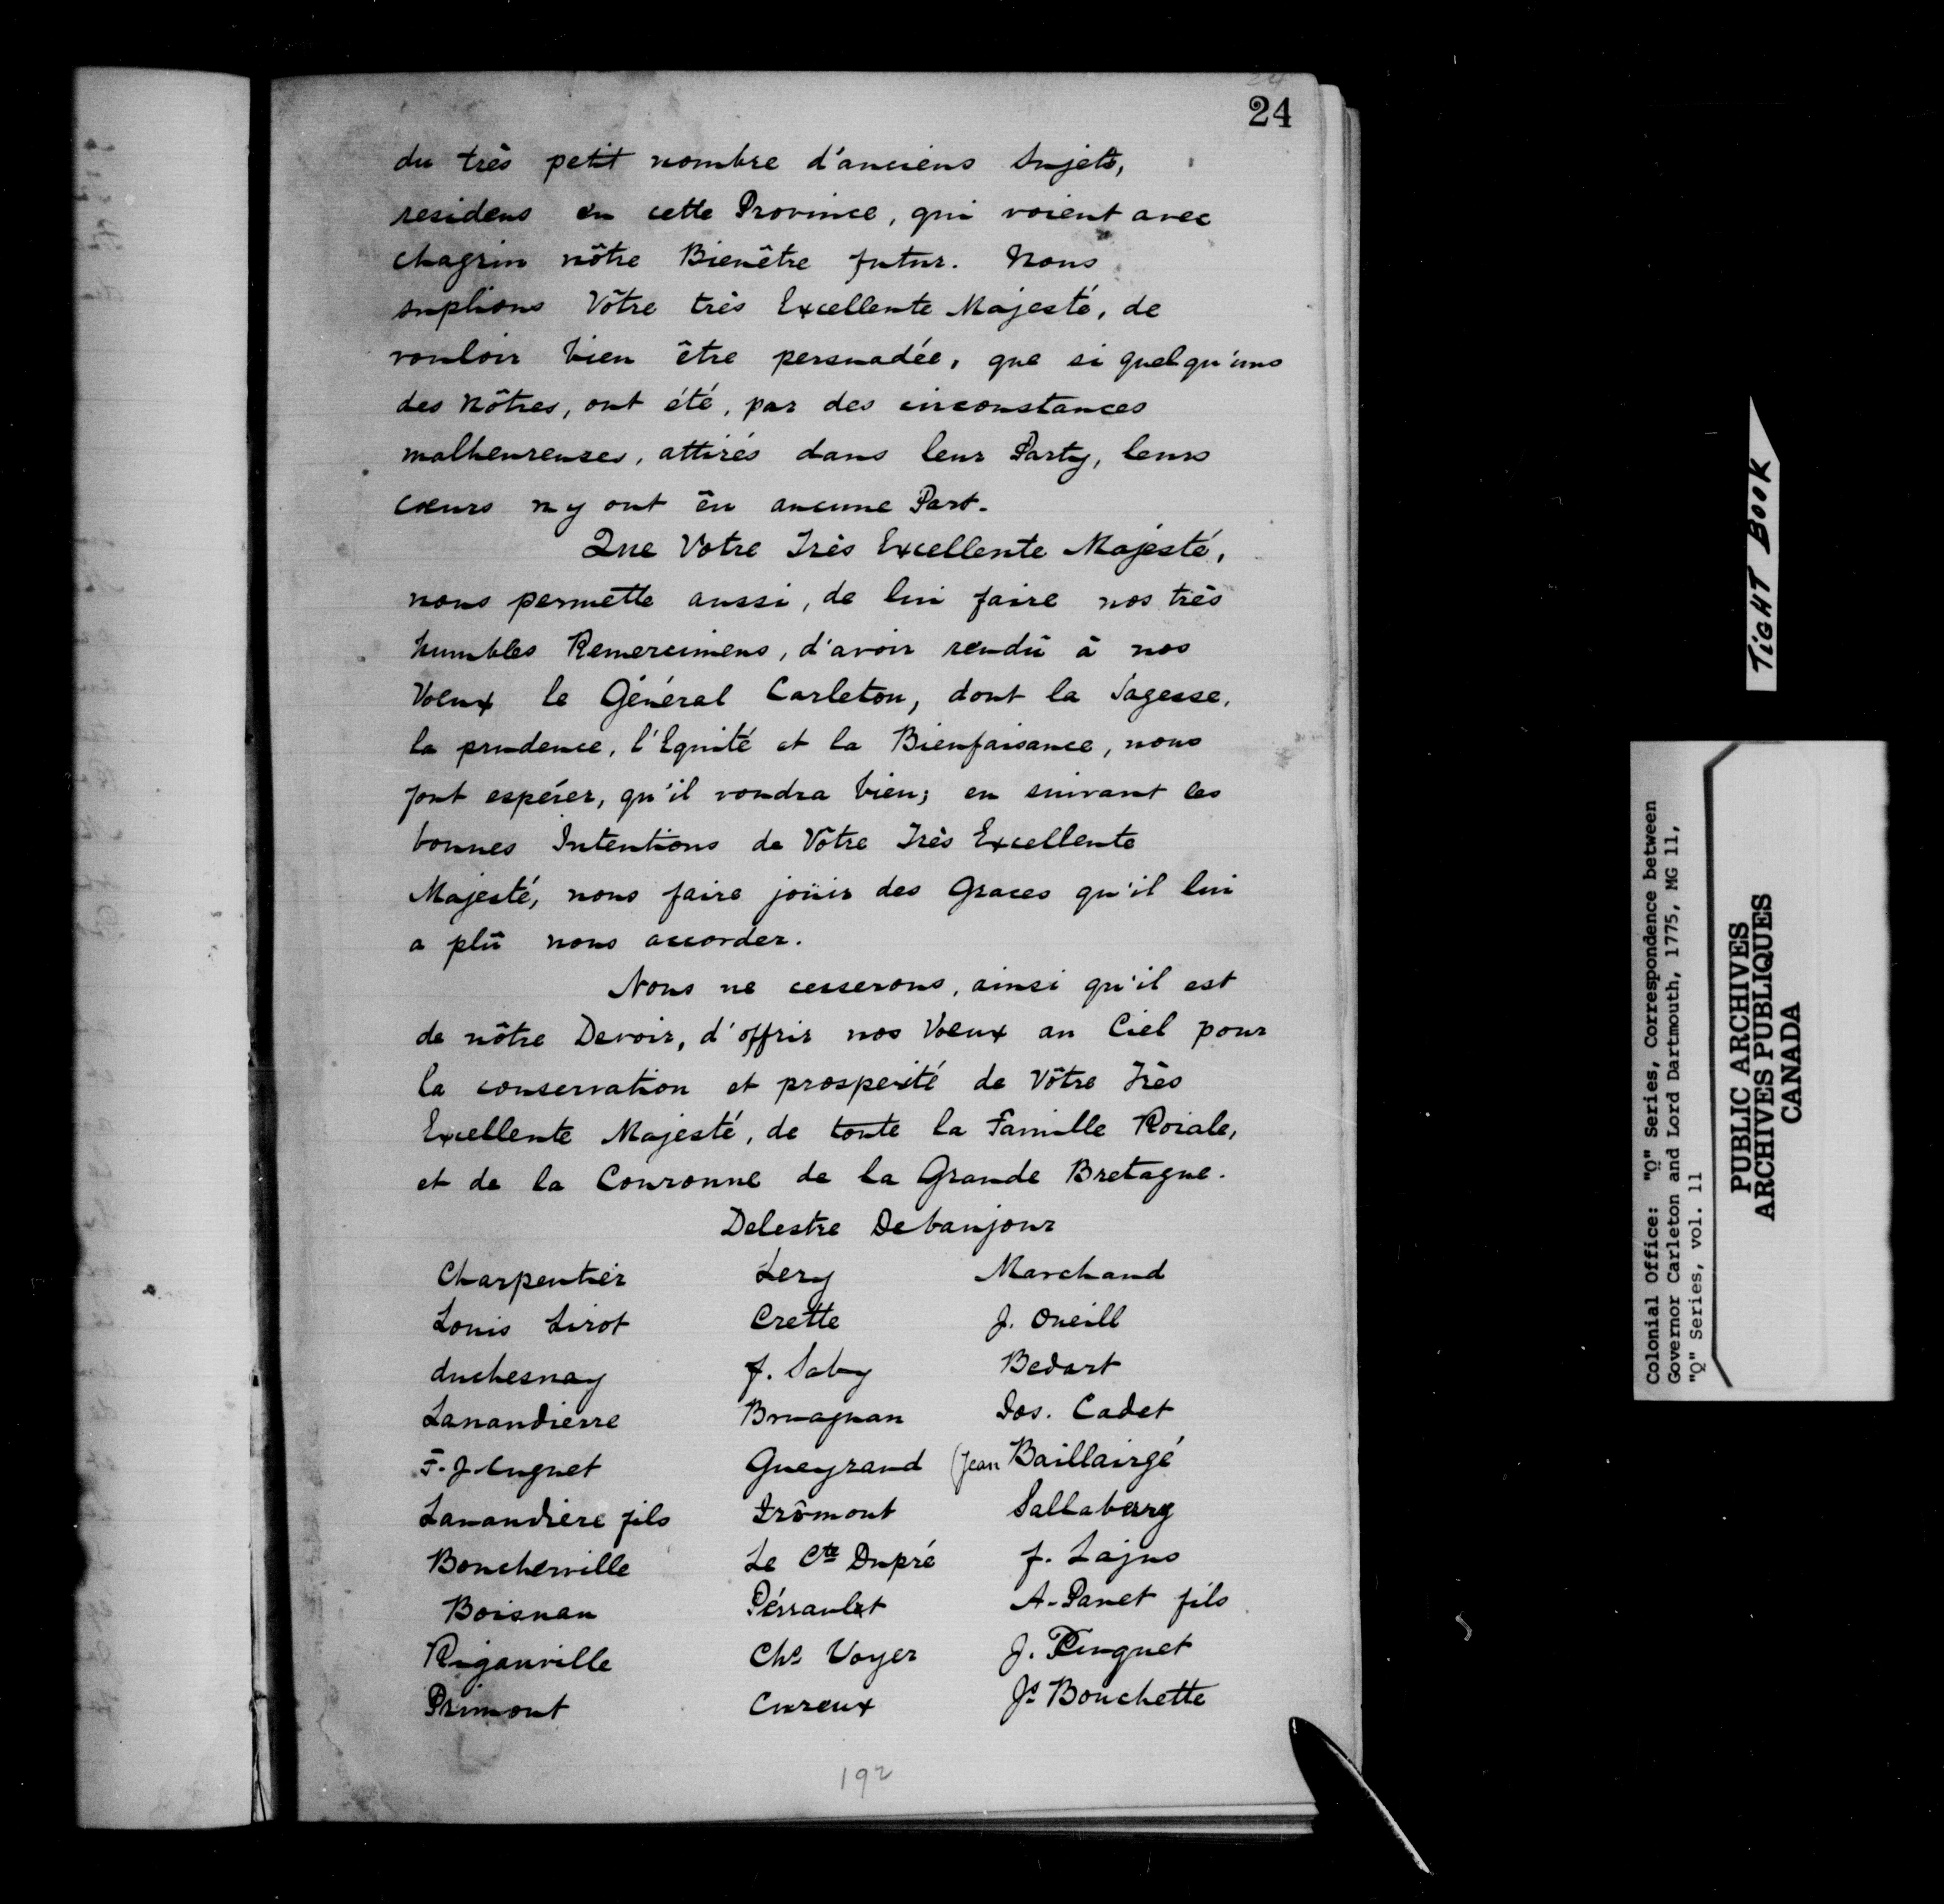 24
du très petit nombre d'anciens Sujets,
residens en cette Province, qui voient avec
chagrin nôtre Bienêtre futur. Nous
suplions Vôtre très Excellente Majesté, de
vouloir bien être persuadée, que si quelqu'uns
des Nôtres, ont été, par des circonstances
malheureuses, attirés dans leur Party, leurs
cœurs n'y ont êu aucune Part.
Que Votre Très Excellente Majesté,
nous permette aussi, de lui faire nos très
humbles Remercimens, d'avoir rendû à nos
Voeux le Général Carleton, dont la Sagesse,
la prudence, l'Equité et la Bienfaisance, nous
font espérer, qu'il voudra bien; en suivant les
bonnes Intentions de Vôtre Très Excellente
Majesté, nous faire joüir des Graces qu'il lui
a plû nous accorder.
Nous ne cesserons, ainsi qu'il est
de nôtre Devoir, d'offrir nos Voeux au Ciel pour
la conservation et prosperité de Vôtre Très
Excellente Majesté, de toute la Famille Roiale,
et de la Couronne de la Grande Bretagne.
Delestre Debaujour
Charpentier Lery Marchand
Louis Lirot Crette J. Oneill
duchesnay f. Saby Bedart
Lanaudierre Bruagnan Jos. Cadet
F. J. Cugnet Gueyraud (Jean Baillairgé
Lanaudière fils Trômont Sallaberry
Boucherville Le Cte Dupré f. Lajus
Boisnau Pérrault A. Panet fils
Rigauville Chs Voyer J. Pinguet
Primont Cureux Js Bouchette
192
TIGHT BOOK
Colonial Office: "Q" Series, Correspondence between
Governor Carleton and Lord Dartmouth, 1775, MG 11,
"Q" Series, vol. 11
PUBLIC ARCHIVES
ARCHIVES PUBLIQUES
CANADA